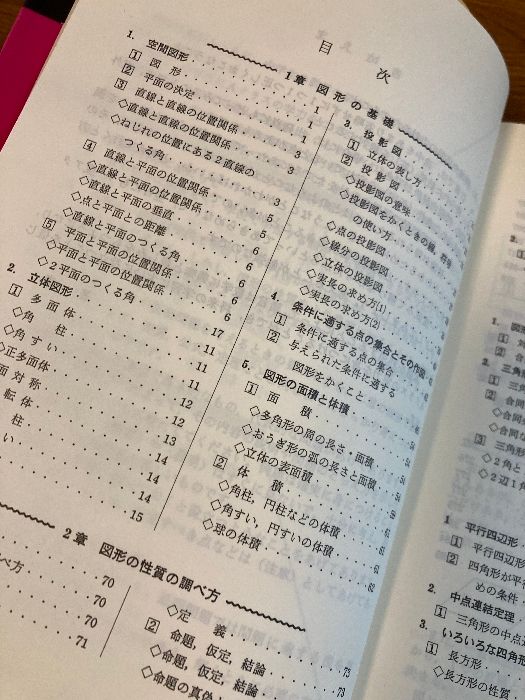 目次
1章 図形の基礎
1. 空間図形
1 図形 1
2 平面の決定 1
3 直線と直線の位置関係 1
◇直線と直線の位置関係 3
◇ねじれの位置にある2直線の
つくる角 3
4 直線と平面の位置関係 3
◇直線と平面の位置関係 5
◇直線と平面の垂直 5
◇点と平面との距離 6
◇直線と平面のつくる角 6
5 平面と平面の位置関係 6
◇平面と平面の位置関係 6
◇2平面のつくる角 6
2. 立体図形 17
1 多面体 11
◇角柱 11
◇角すい 11
正多面体 12
面対称 12
転体 13
柱 14
い 14
14
15
3. 投影図
1 立体の表し方
2 投影図
◇投影図の意味
◇投影図をかくときの線, 符号
の使い方
◇点の投影図
◇線分の投影図
◇立体の投影図
◇実長の求め方(1)
◇実長の求め方(2)
4. 条件に適する点の集合とその作図
1 条件に適する点の集合
2 与えられた条件に適する
図形をかくこと
5. 図形の面積と体積
1 面積
◇多角形の周の長さ, 面積
◇おうぎ形の弧の長さと面積
◇立体の表面積
2 体積
◇角柱, 円柱などの体積
◇角すい, 円すいの体積 61
◇球の体積 62
2章 図形の性質の調べ方
べ方 70
70
70
71
◇定義 73
2 命題, 仮定, 結論 73
◇命題, 仮定, 結論
◇命題の真偽
1 平行四辺形
1 平行四辺形
2 四角形が平行
めの条件
2. 中点連結定理
1 三角形の中点
3. いろいろな四角形
1 長方形
◇長方形の性質